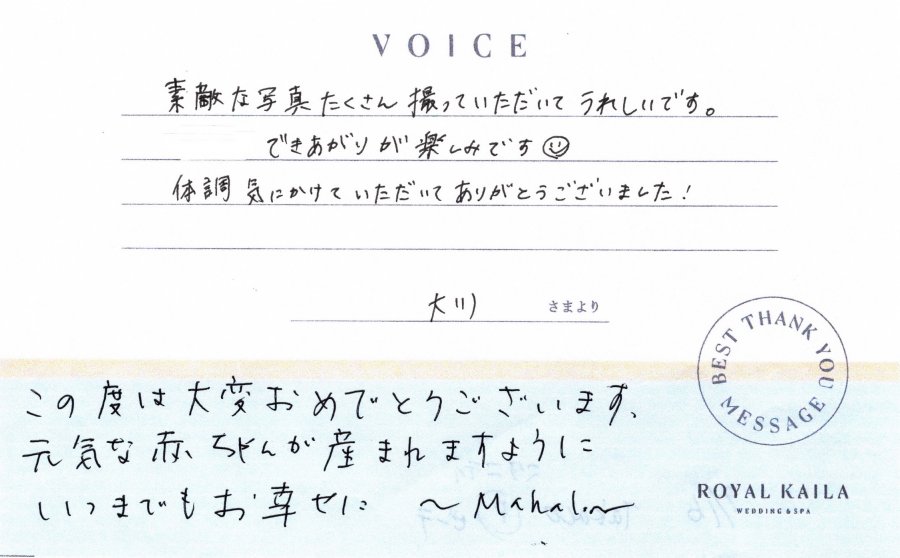 VOICE
素敵な写真たくさん撮っていただいてうれしいです。
できあがりが楽しみです
体調気にかけていただいてありがとうございました!
大川 さまより
BEST THANK YOU MESSAGE
この度は大変おめでとうございます、
元気な赤ちゃんが産まれますように
いつまでもお幸せに 〜Mahalo〜
ROYAL KAILA
WEDDING & SPA